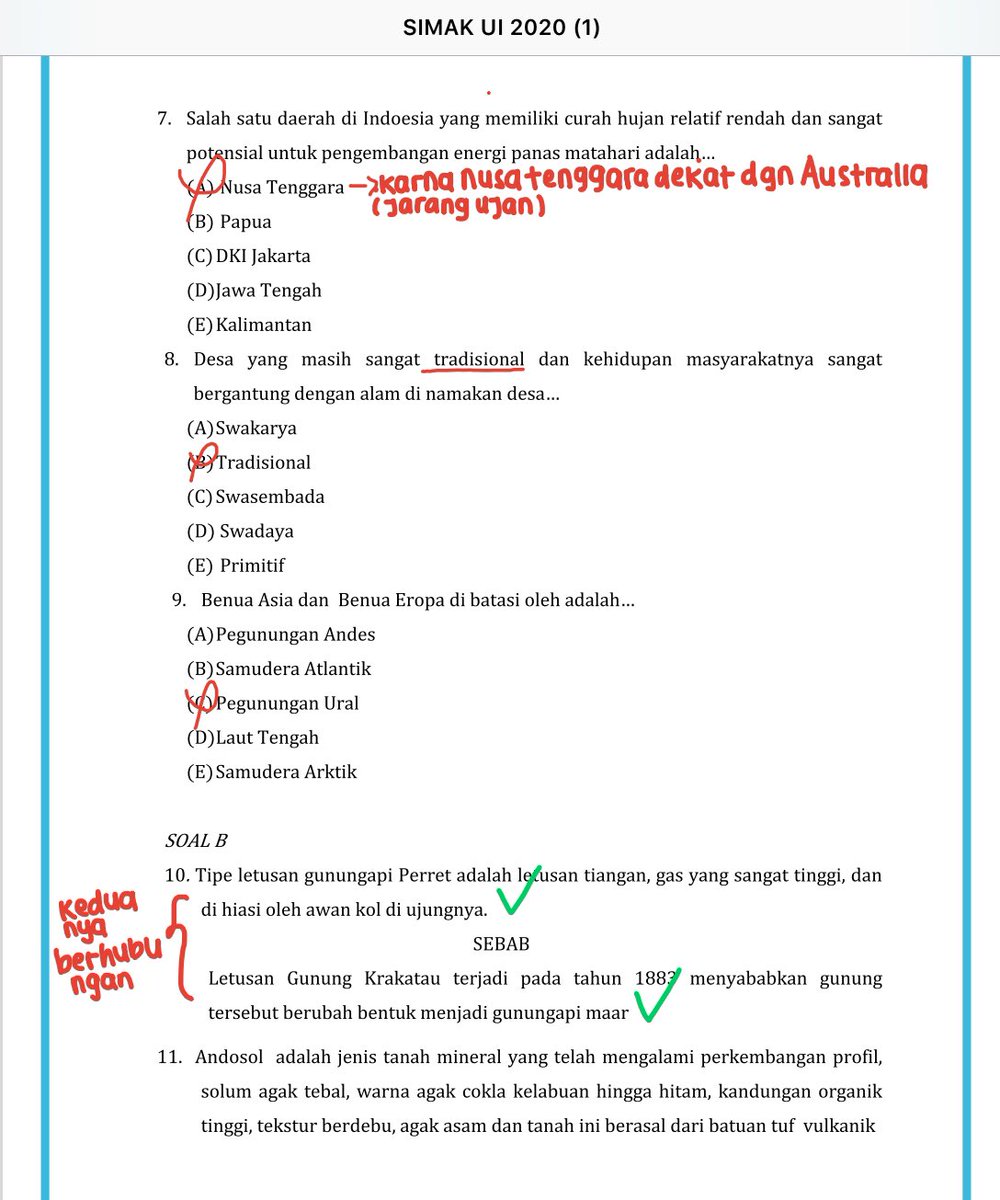 SIMAK UI 2020 (1)
7. Salah satu daerah di Indoesia yang memiliki curah hujan relatif rendah dan sangat
potensial untuk pengembangan energi panas matahari adalah...
(A) Nusa Tenggara → karna nusa tenggara dekat dgn Australia
(jarang ujan)
(B) Papua
(C) DKI Jakarta
(D) Jawa Tengah
(E) Kalimantan
8. Desa yang masih sangat tradisional dan kehidupan masyarakatnya sangat
bergantung dengan alam di namakan desa...
(A) Swakarya
(B) Tradisional
(C) Swasembada
(D) Swadaya
(E) Primitif
9. Benua Asia dan Benua Eropa di batasi oleh adalah...
(A) Pegunungan Andes
(B) Samudera Atlantik
(C) Pegunungan Ural
(D) Laut Tengah
(E) Samudera Arktik
SOAL B
10. Tipe letusan gunungapi Perret adalah letusan tiangan, gas yang sangat tinggi, dan
di hiasi oleh awan kol di ujungnya.
kedua
nya
berhubu
ngan
SEBAB
Letusan Gunung Krakatau terjadi pada tahun 1883 menyababkan gunung
tersebut berubah bentuk menjadi gunungapi maar
11. Andosol adalah jenis tanah mineral yang telah mengalami perkembangan profil,
solum agak tebal, warna agak cokla kelabuan hingga hitam, kandungan organik
tinggi, tekstur berdebu, agak asam dan tanah ini berasal dari batuan tuf vulkanik